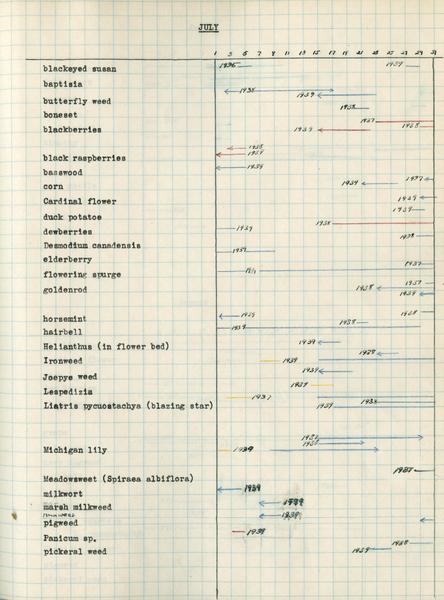 JULY
1 3 5 7 9 11 13 15 17 19 21 23 25 27 29 31
blackeyed susan 1936 1939
baptisia 1938
butterfly weed 1939
boneset 1938
1937
blackberries 1939 1938
1938
black raspberries 1939
basswood 1939
corn 1939 1937
Cardinal flower 1939
duck potatoe 1939
dewberries 1939 1938
1938
Desmodium canadensis 1939
elderberry 1937
flowering spurge
goldenrod 1938 1937
1939
horsemint 1939 1938
hairbell 1939 1938
Helianthus (in flower bed) 1939
Ironweed 1939 1938
Joepye weed 1939
Lespedizia 1939
Liatris pycuostachya (blazing star) 1937 1938
1939
Michigan lily 1939
Meadowsweet (Spiraea albiflora) 1937
milkwort 1939
marsh milkweed 1939
1939
pigweed
Panicum sp. 1939
pickeral weed 1939 1938